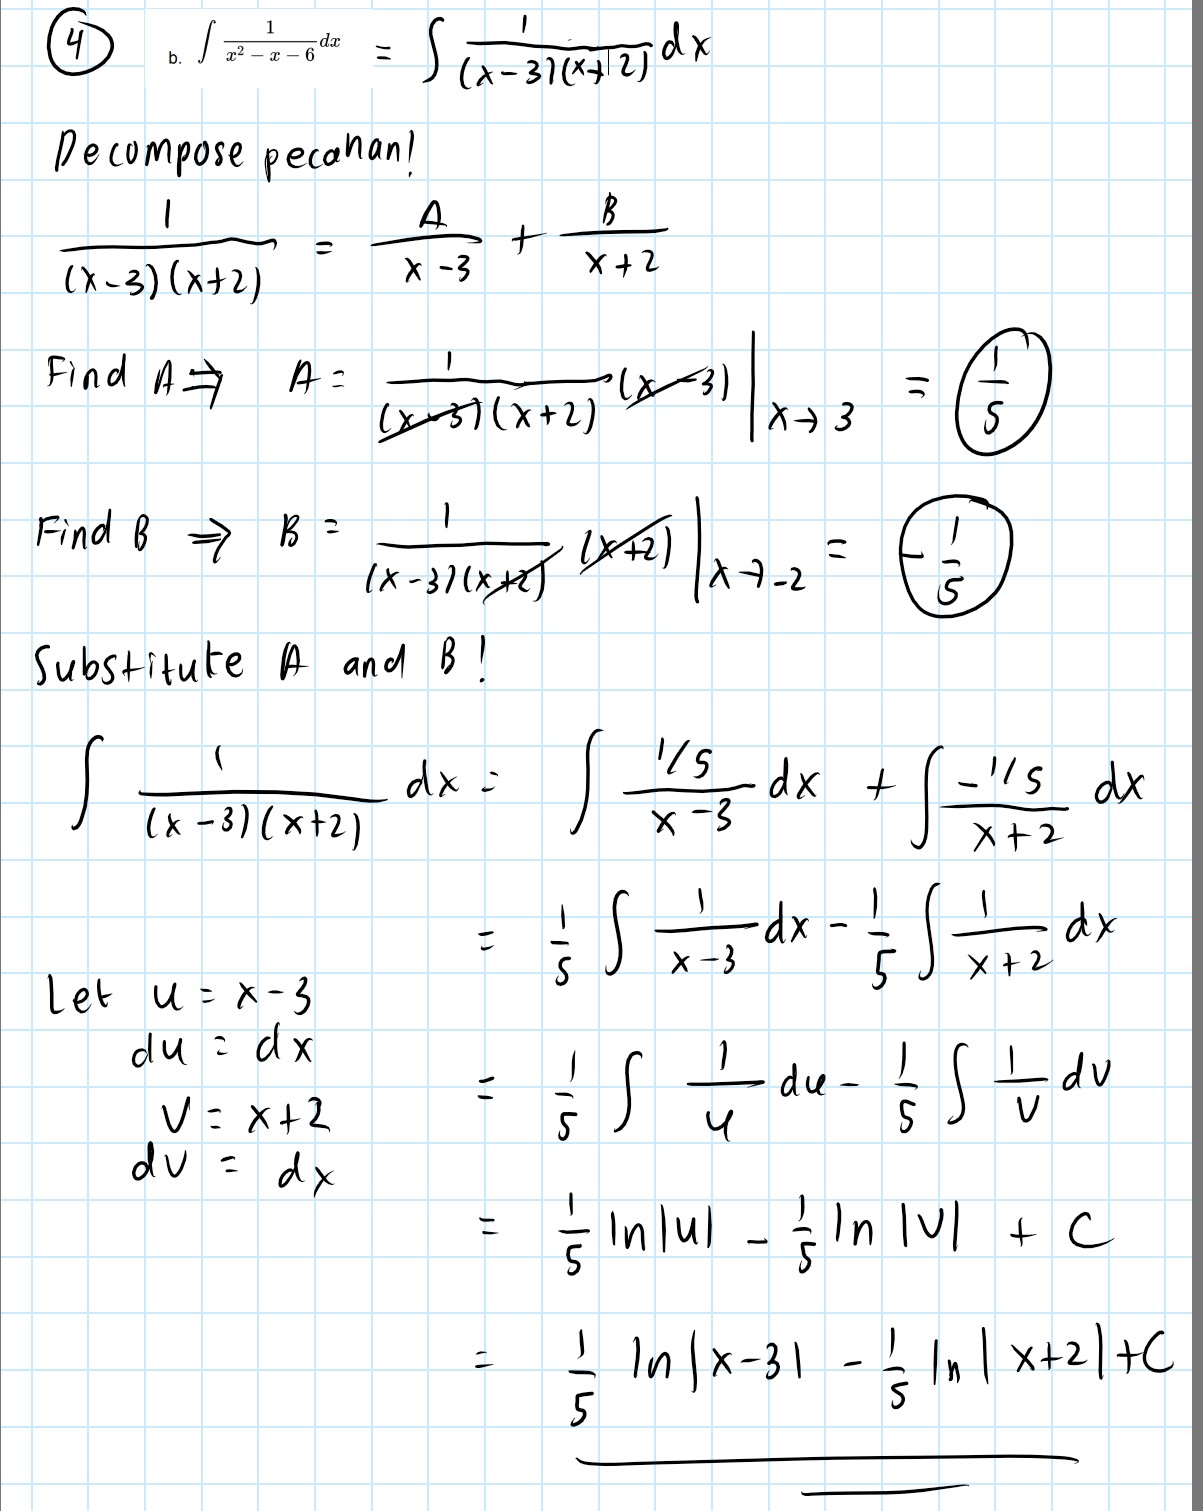 ④ b. ∫ 1/(x² − x − 6) dx = ∫ 1/((x−3)(x+2)) dx
Decompose pecahan!
1/((x−3)(x+2)) = A/(x−3) + B/(x+2)
Find A ⇒ A = 1/((x−3)(x+2)) (x−3) | x→3 = 1/5
Find B ⇒ B = 1/((x−3)(x+2)) (x+2) | x→−2 = −1/5
Substitute A and B!
∫ 1/((x−3)(x+2)) dx = ∫ (1/5)/(x−3) dx + ∫ (−1/5)/(x+2) dx
= 1/5 ∫ 1/(x−3) dx − 1/5 ∫ 1/(x+2) dx
Let u = x−3
du = dx
v = x+2
dv = dx
= 1/5 ∫ 1/u du − 1/5 ∫ 1/v dv
= 1/5 ln|u| − 1/5 ln|v| + C
= 1/5 ln|x−3| − 1/5 ln|x+2| + C